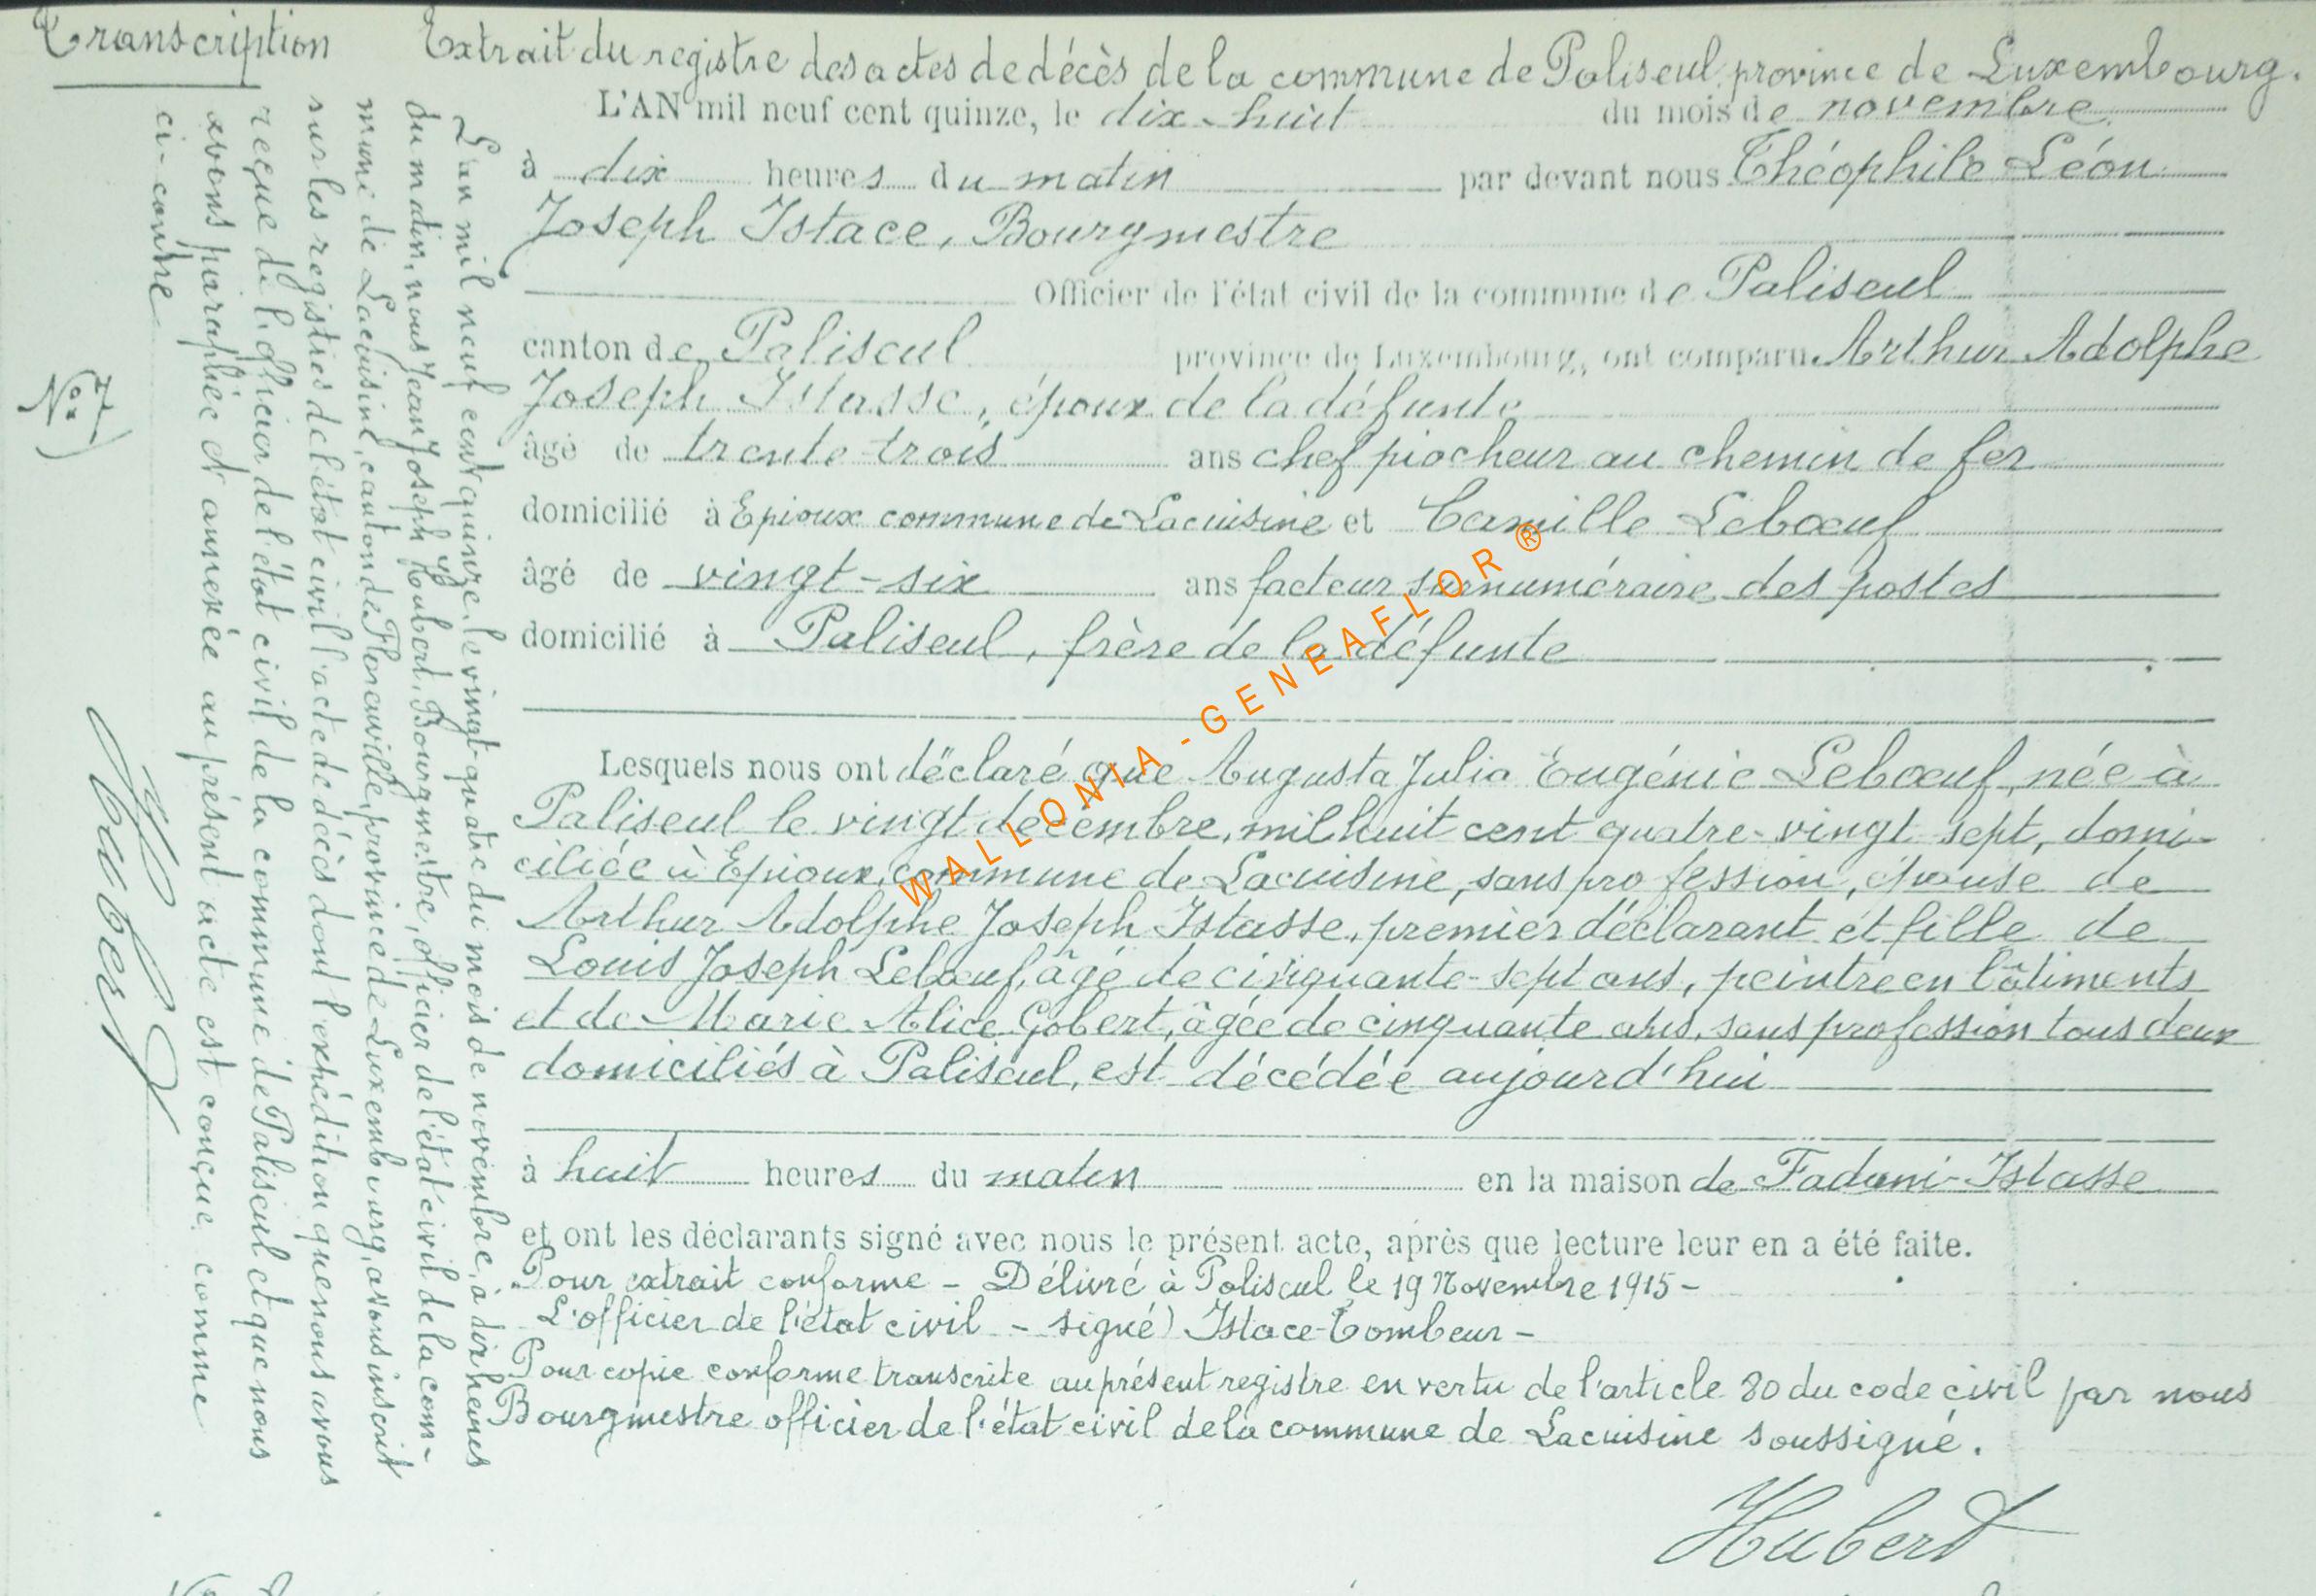 Transcription
Extrait du registre des actes de décès de la commune de Paliseul province de Luxembourg.
L'AN mil neuf cent quinze, le dix-huit du mois de novembre
à dix heures du matin par devant nous Théophile Léon
Joseph Istace, Bourgmestre
Officier de l'état civil de la commune de Paliseul
canton de Paliseul province de Luxembourg, ont comparu Arthur Adolphe
Joseph Istasse, époux de la défunte
âgé de trente-trois ans chef piocheur au chemin de fer
domicilié à Epioux commune de Lacuisine et Camille Lebœuf
âgé de vingt-six ans facteur surnuméraire des postes
domicilié à Paliseul, frère de la défunte
Lesquels nous ont déclaré que Augusta Julia Eugénie Lebœuf, née à
Paliseul le vingt décembre, mil huit cent quatre-vingt sept, domi-
ciliée à Epioux, commune de Lacuisine, sans profession, épouse de
Arthur Adolphe Joseph Istasse, premier déclarant et fille de
Louis Joseph Lebœuf, âgé de cinquante-sept ans, peintre en bâtiments
et de Marie Alice Gobert, âgée de cinquante ans, sans profession tous deux
domiciliés à Paliseul, est décédée aujourd'hui
à huit heures du matin en la maison de Istasse
et ont les déclarants signé avec nous le présent acte, après que lecture leur en a été faite.
Pour extrait conforme - Délivré à Paliseul le 19 Novembre 1915 -
L'officier de l'état civil - signé) Istace-Tombeur -
Pour copie conforme transcrite au présent registre en vertu de l'article 80 du code civil par nous
Bourgmestre officier de l'état civil de la commune de Lacuisine soussigné.
Hubert
L'an mil neuf cent quinze, le vingt quatre du mois de novembre, à dix heures
du matin, nous Jean Joseph Hubert, Bourgmestre, officier de l'état civil de la com-
mune de Lacuisine, canton de Florenville, province de Luxembourg, avons inscrit
sur les registres de l'état civil l'acte de décès dont l'expédition que nous avons
reçue de l'officier de l'état civil de la commune de Paliseul et que nous
avons paraphée et annexée au présent acte est conçue comme
ci-contre
N° 7
Hubert
WALLONIA - GENEAFLOR ®